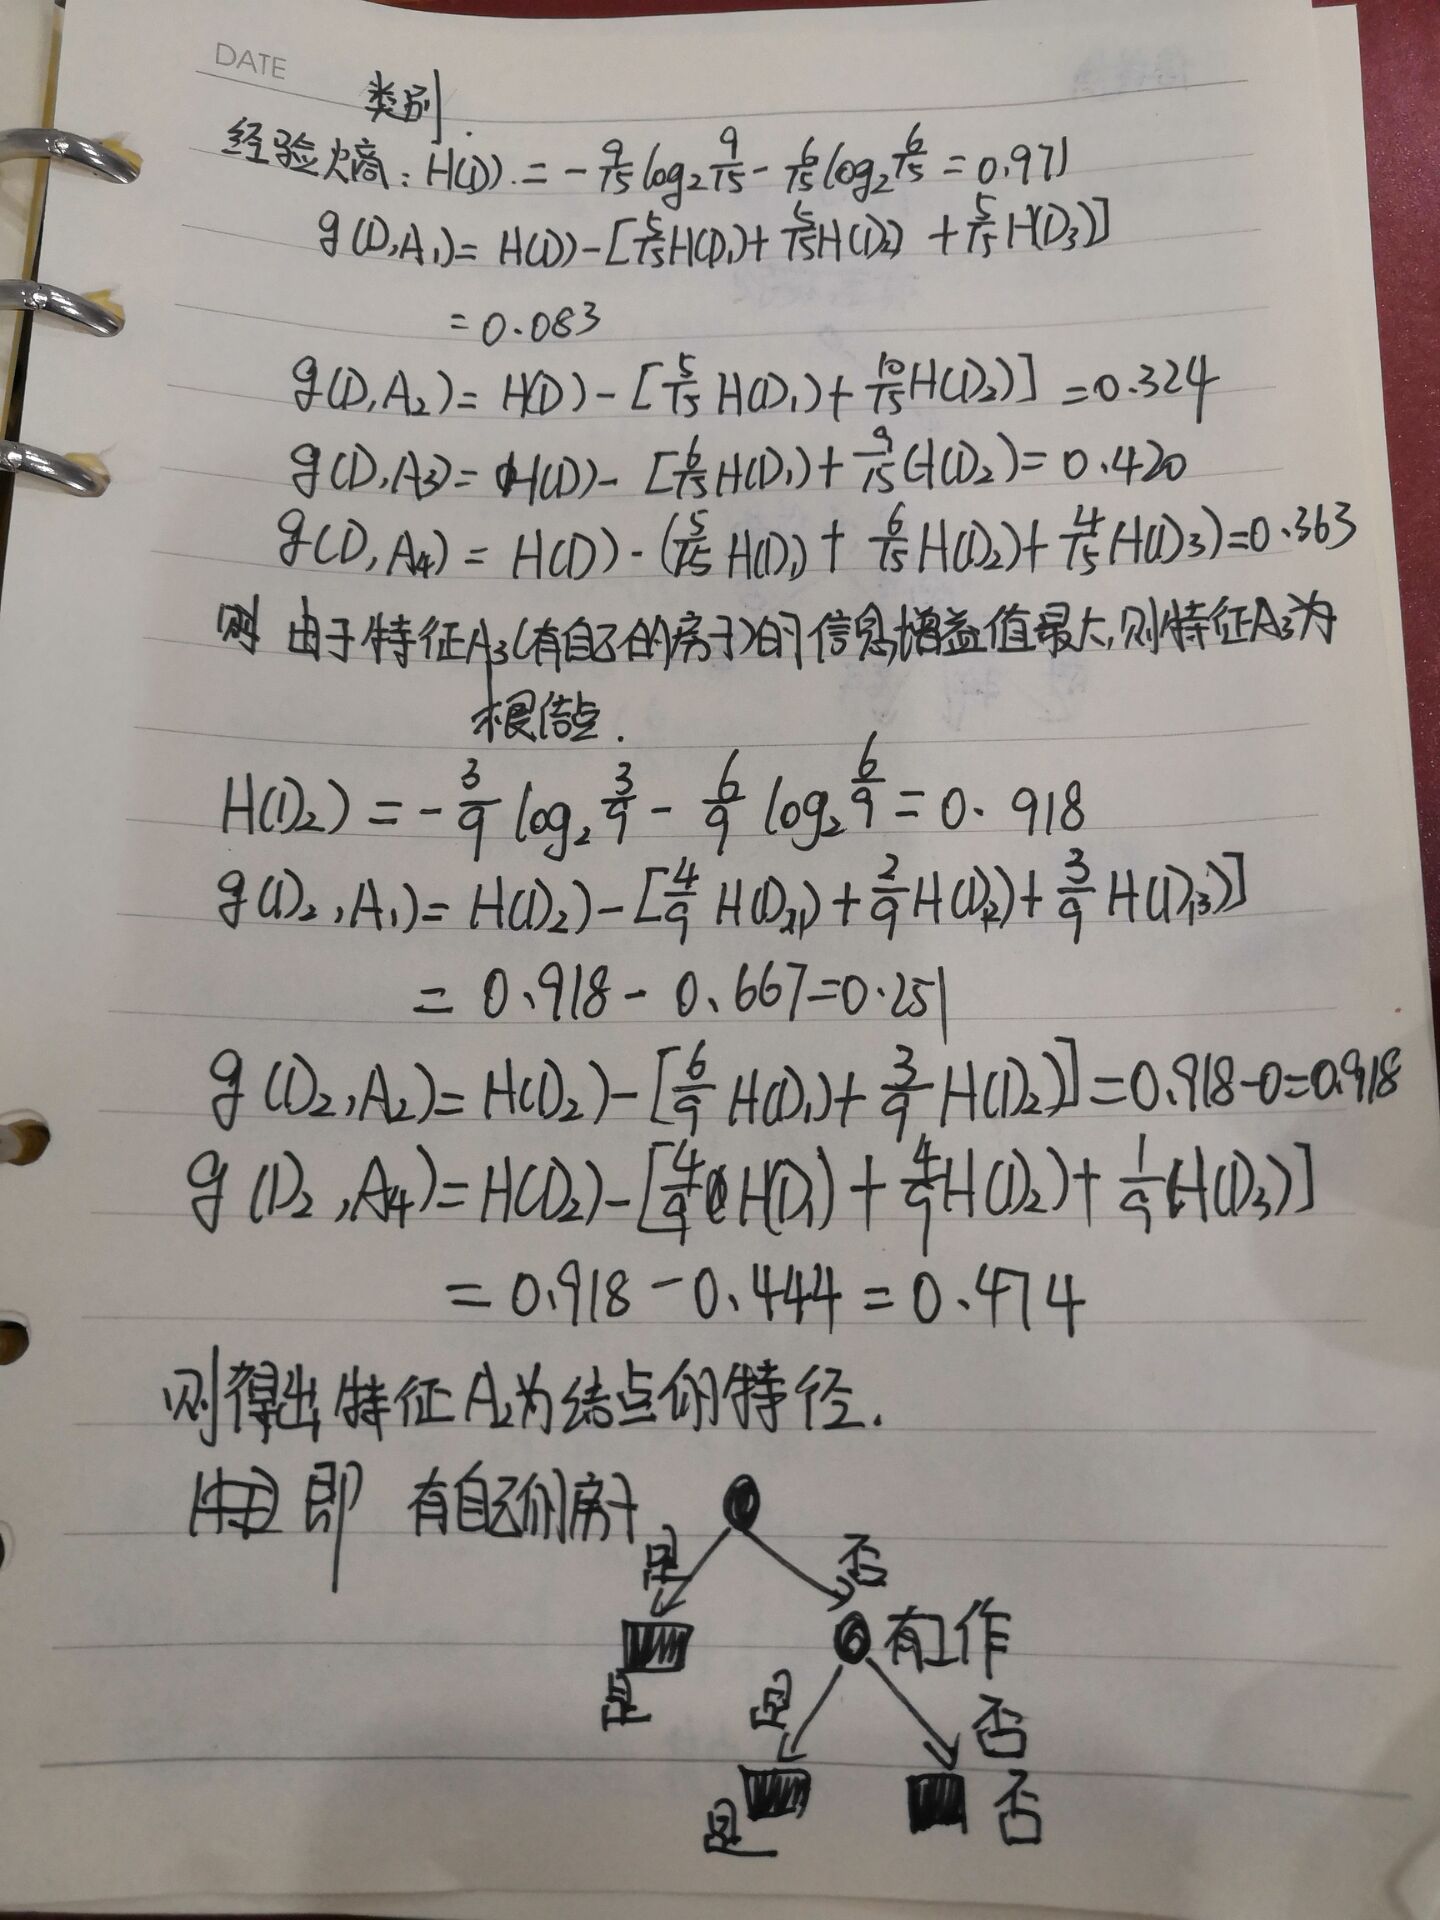 DATE
类别
经验熵：H(D) = -9/15 log₂ 9/15 - 6/15 log₂ 6/15 = 0.971
g(D,A₁) = H(D) - [5/15 H(D₁) + 5/15 H(D₂) + 5/15 H(D₃)]
= 0.083
g(D,A₂) = H(D) - [5/15 H(D₁) + 10/15 H(D₂)] = 0.324
g(D,A₃) = H(D) - [6/15 H(D₁) + 9/15 H(D₂) = 0.420
g(D,A₄) = H(D) - (5/15 H(D₁) + 6/15 H(D₂) + 4/15 H(D₃) = 0.363
则 由于特征A₃(有自己的房子)的信息增益值最大,则特征A₃为
根结点.
H(D₂) = -3/9 log₂ 3/9 - 6/9 log₂ 6/9 = 0.918
g(D₂,A₁) = H(D₂) - [4/9 H(D₂₁) + 2/9 H(D₁₂) + 3/9 H(D₁₃)]
= 0.918 - 0.667 = 0.251
g(D₂,A₂) = H(D₂) - [6/9 H(D₁) + 3/9 H(D₂)] = 0.918 - 0 = 0.918
g(D₂,A₄) = H(D₂) - [4/9 H(D₁) + 4/9 H(D₂) + 1/9 H(D₃)]
= 0.918 - 0.444 = 0.474
则得出特征A₂为结点的特径.
即 有自己的房子
是 否
有工作
是 是 否
是 否